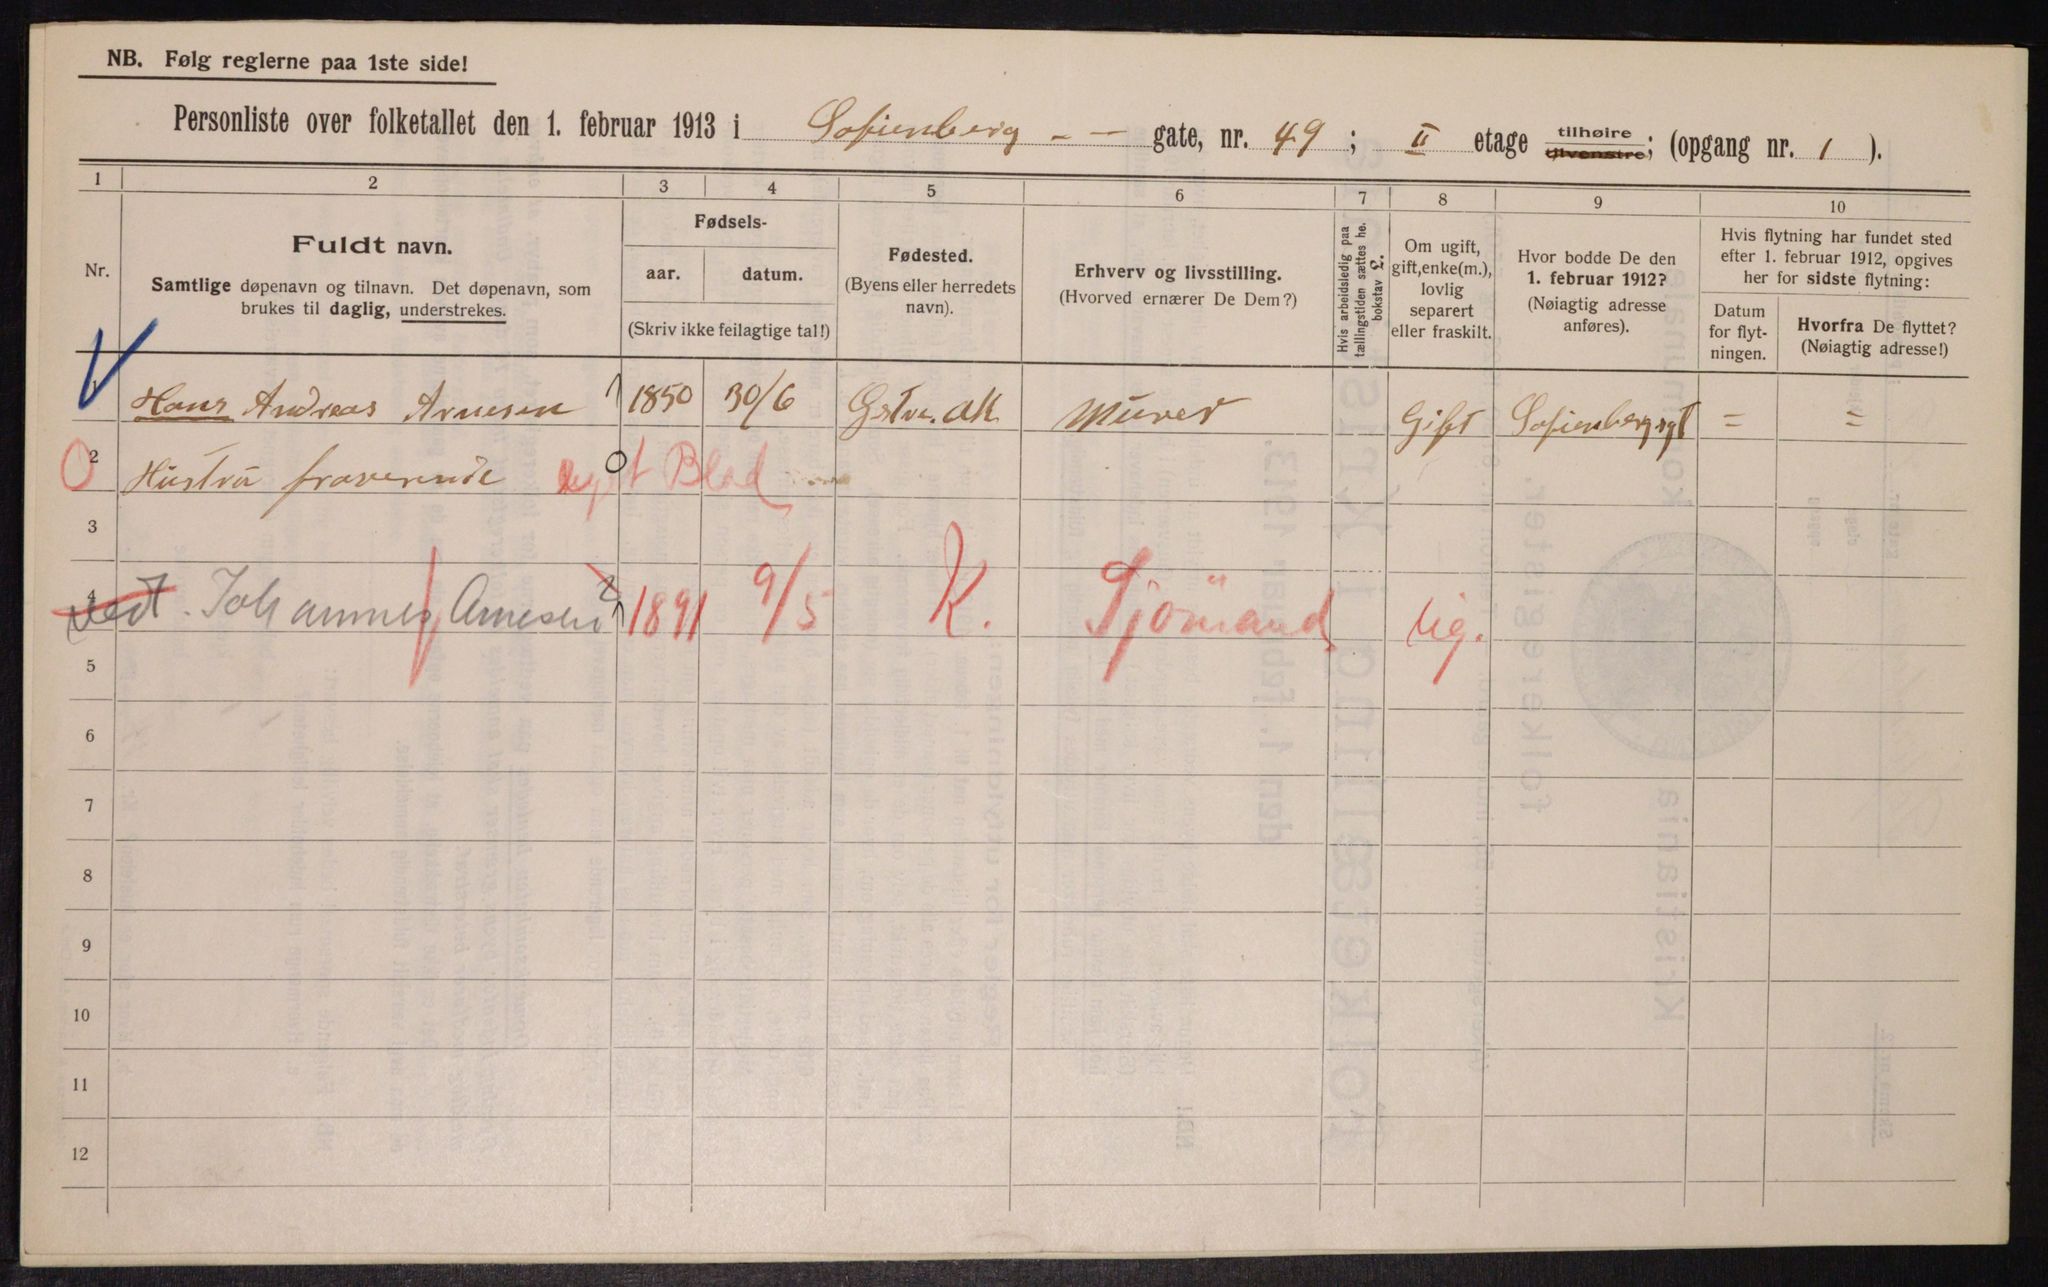 NB. Følg reglerne paa 1ste side!
Personliste over folketallet den 1. februar 1913 i Sofienberg - - gate, nr. 49 ; II etage tilhøire tilvenstre; (opgang nr. 1 ).
1 2 3 4 5 6 7 8 9 10
Nr.
Fuldt navn.
Samtlige døpenavn og tilnavn. Det døpenavn, som
brukes til daglig, understrekes.
Fødsels-
aar. datum.
(Skriv ikke feilagtige tal!)
Fødested.
(Byens eller herredets
navn).
Erhverv og livsstilling.
(Hvorved ernærer De Dem?)
Hvis arbeidsledig paa
tællingstiden sættes he.
bokstav L.
Om ugift,
gift, enke(m.),
lovlig
separert
eller fraskilt.
Hvor bodde De den
1. februar 1912?
(Nøiagtig adresse
anføres).
Hvis flytning har fundet sted
efter 1. februar 1912, opgives
her for sidste flytning:
Datum
for flyt-
ningen.
Hvorfra De flyttet?
(Nøiagtig adresse!)
1 Hans Andreas Arnesen 1850 30/6 Ø. Aker Murer Gift Sofienberggt = =
2 Hustru fraværende nyt Blad
3
4 Johannes Arnesen 1891 9/5 K. Sjömand ug.
5
6
7
8
9
10
11
12